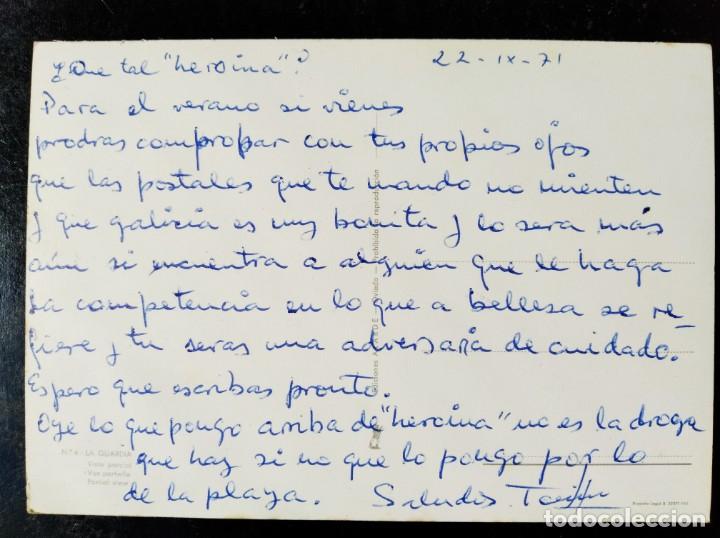 ¿Que tal "heroina"? 22-IX-71
Para el verano si vienes
prodras compropar con tus propios ojos
que las postales que te mando no mienten
y que galicia es muy bonita y lo sera más
aún si encuentra a alguien que le haga
la competencia en lo que a belleza se re-
fiere y tu seras una adversaria de cuidado.
Espero que escribas pronto.
Oye lo que pongo arriba de "heroina" no es la droga
que hay si no que lo pongo por lo
de la playa. Saludos
N.º 4 - LA GUARDIA
Vista parcial
Vue partielle
Partial view
Oviedo - Prohibida la reproducción
todocoleccion
todocoleccion.net